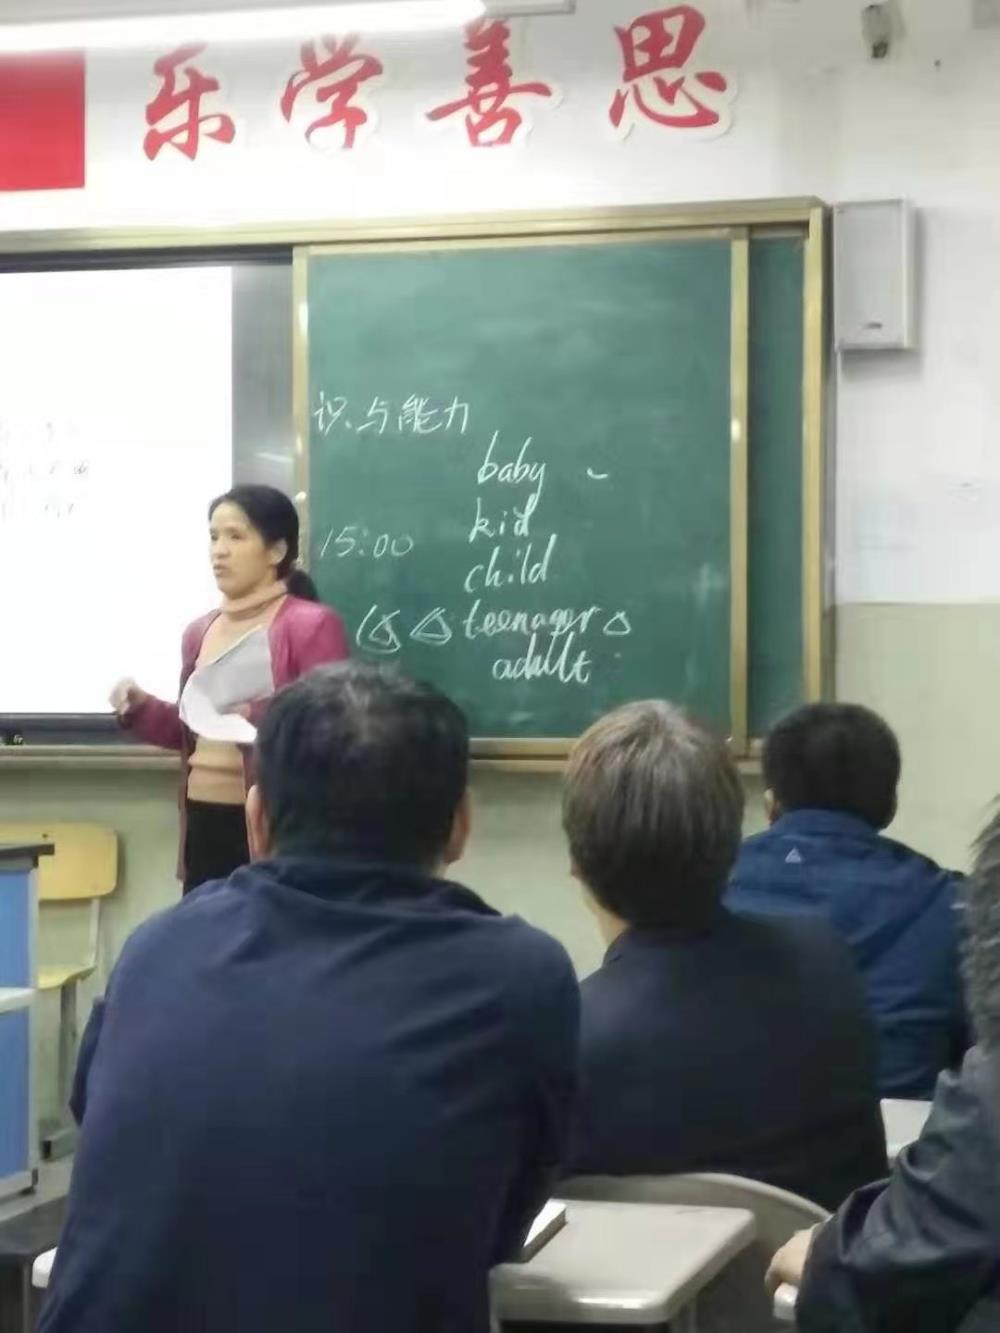 乐学善思
识与能力
baby
kid
15:00
child
teenager
adult